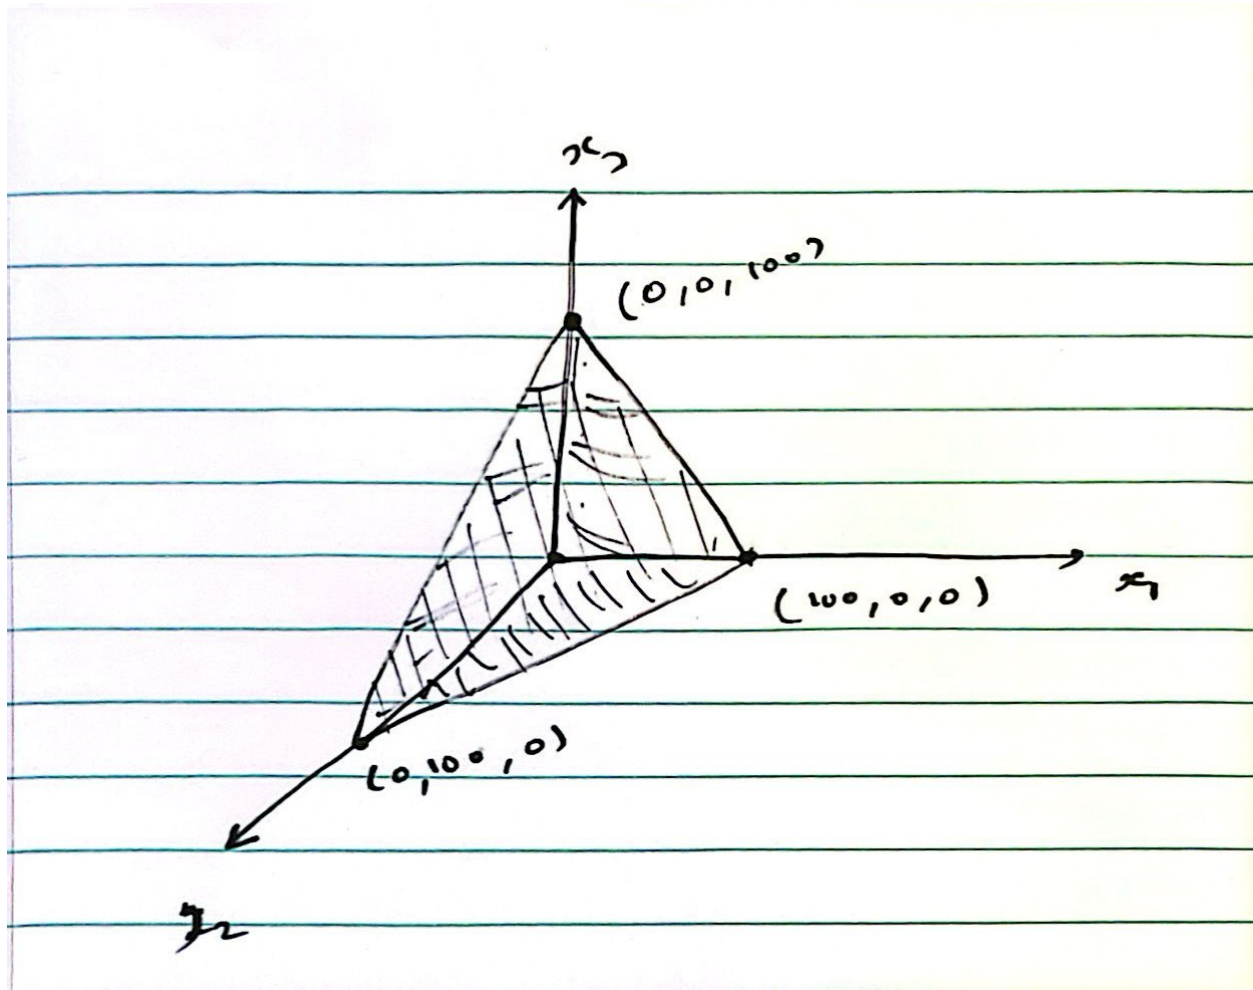 x₃
(0,0,100)
x₁
(100,0,0)
(0,100,0)
x₂